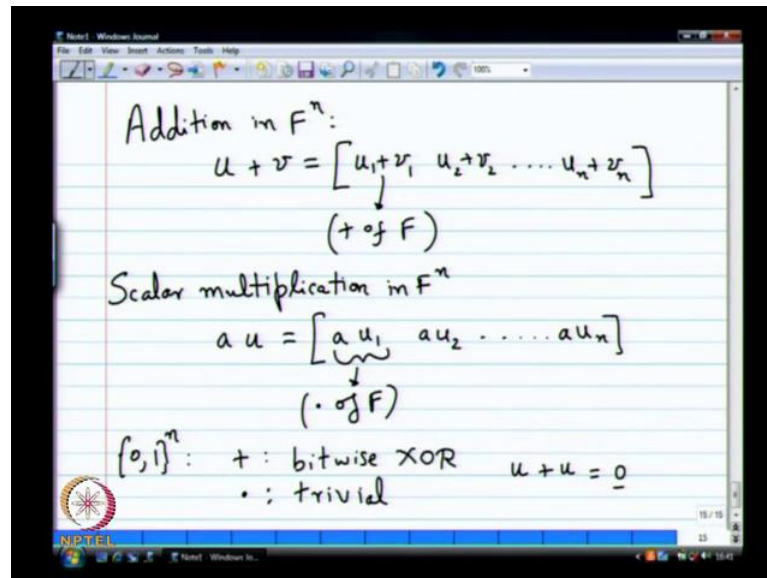 Note1 - Windows Journal
File Edit View Insert Actions Tools Help
100%
Addition in Fⁿ:
u + v = [u₁+v₁ u₂+v₂ .... uₙ+vₙ]
(+ of F)
Scalar multiplication in Fⁿ
a u = [a u₁ au₂ ..... auₙ]
(· of F)
{0,1}ⁿ: + : bitwise XOR u + u = 0
· : trivial
15 / 15
15
NPTEL
Note1 - Windows Jo...
16:41